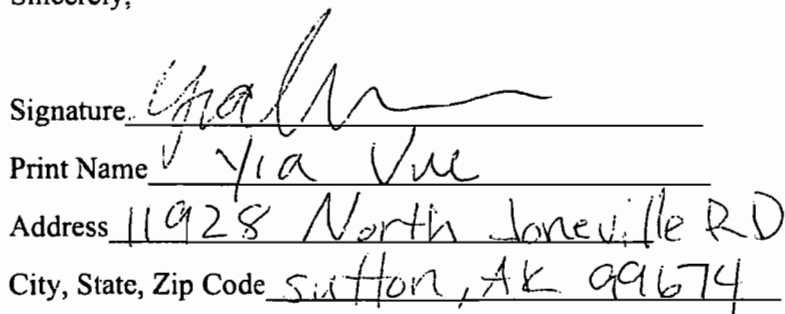 Sincerely,
Signature
Print Name Yia Vue
Address 11928 North Joneville RD
City, State, Zip Code Sutton, AK 99674